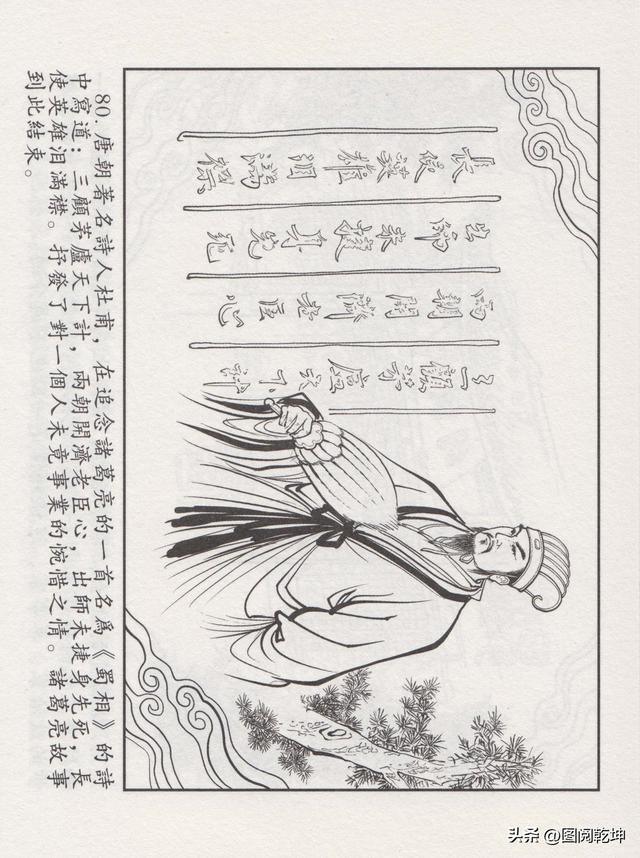 三顧茅廬天下計
兩朝開濟老臣心
出師未捷身先死
長使英雄泪滿襟
80. 唐朝著名詩人杜甫，在追念諸葛亮的一首名爲《蜀相》的詩
中寫道：三顧茅廬天下計，兩朝開濟老臣心，出師未捷身先死，長
使英雄泪滿襟。抒發了對一個人未竟事業的惋惜之情。諸葛亮故事
到此結束。
头条 @图阅乾坤